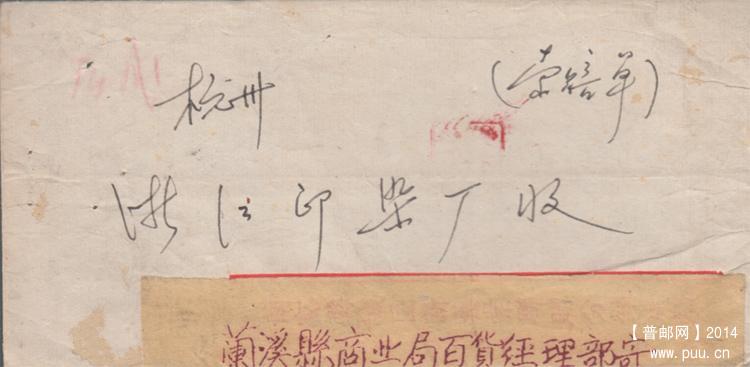 杭州
浙江印染厂收
蘭溪縣商业局百貨経理部寄
【普邮网】2014
www.puu.cn